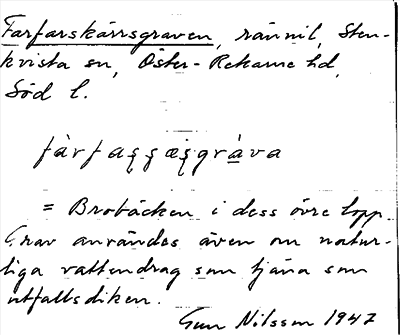 Farfarskärrsgraven, rännil, Sten-
kvista sn, Öster-Rekarne hd,
Söd l.
fàrfaʂʂæʂgràva
= Brobäcken i dess övre lopp
Grav användes även om natur-
liga vattendrag som tjäna som
utfallsdiken.
Gun Nilsson 1947